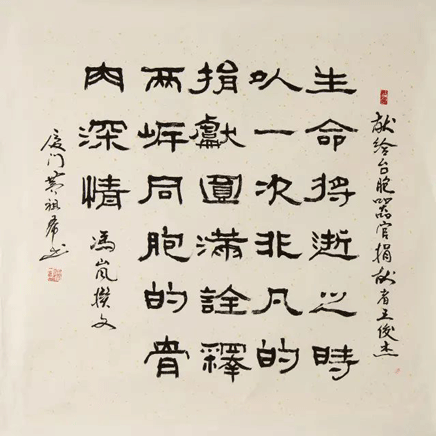 献给台胞器官捐献者王俊杰
生命将逝之時
以一次非凡的
捐獻圓滿詮釋
两岸同胞的骨
肉深情
冯岚撰文
厦门黄祖书